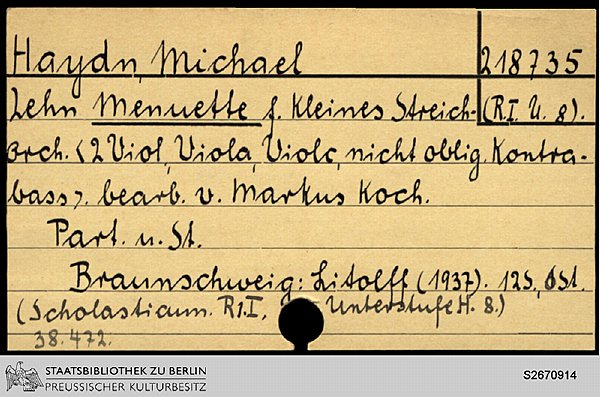 Haydn, Michael 218735
Zehn Menuette f. kleines Streich- (R.I. U. 8).
orch. <2 Viol, Viola, Violc, nicht oblig. Kontra-
bass>. bearb. v. Markus Koch.
Part. u. St.
Braunschweig: Litolff (1937). 12S, 6St.
(Scholasticum. R1.I, Unterstufe H. 8.)
38.472.
STAATSBIBLIOTHEK ZU BERLIN
PREUSSISCHER KULTURBESITZ
S2670914